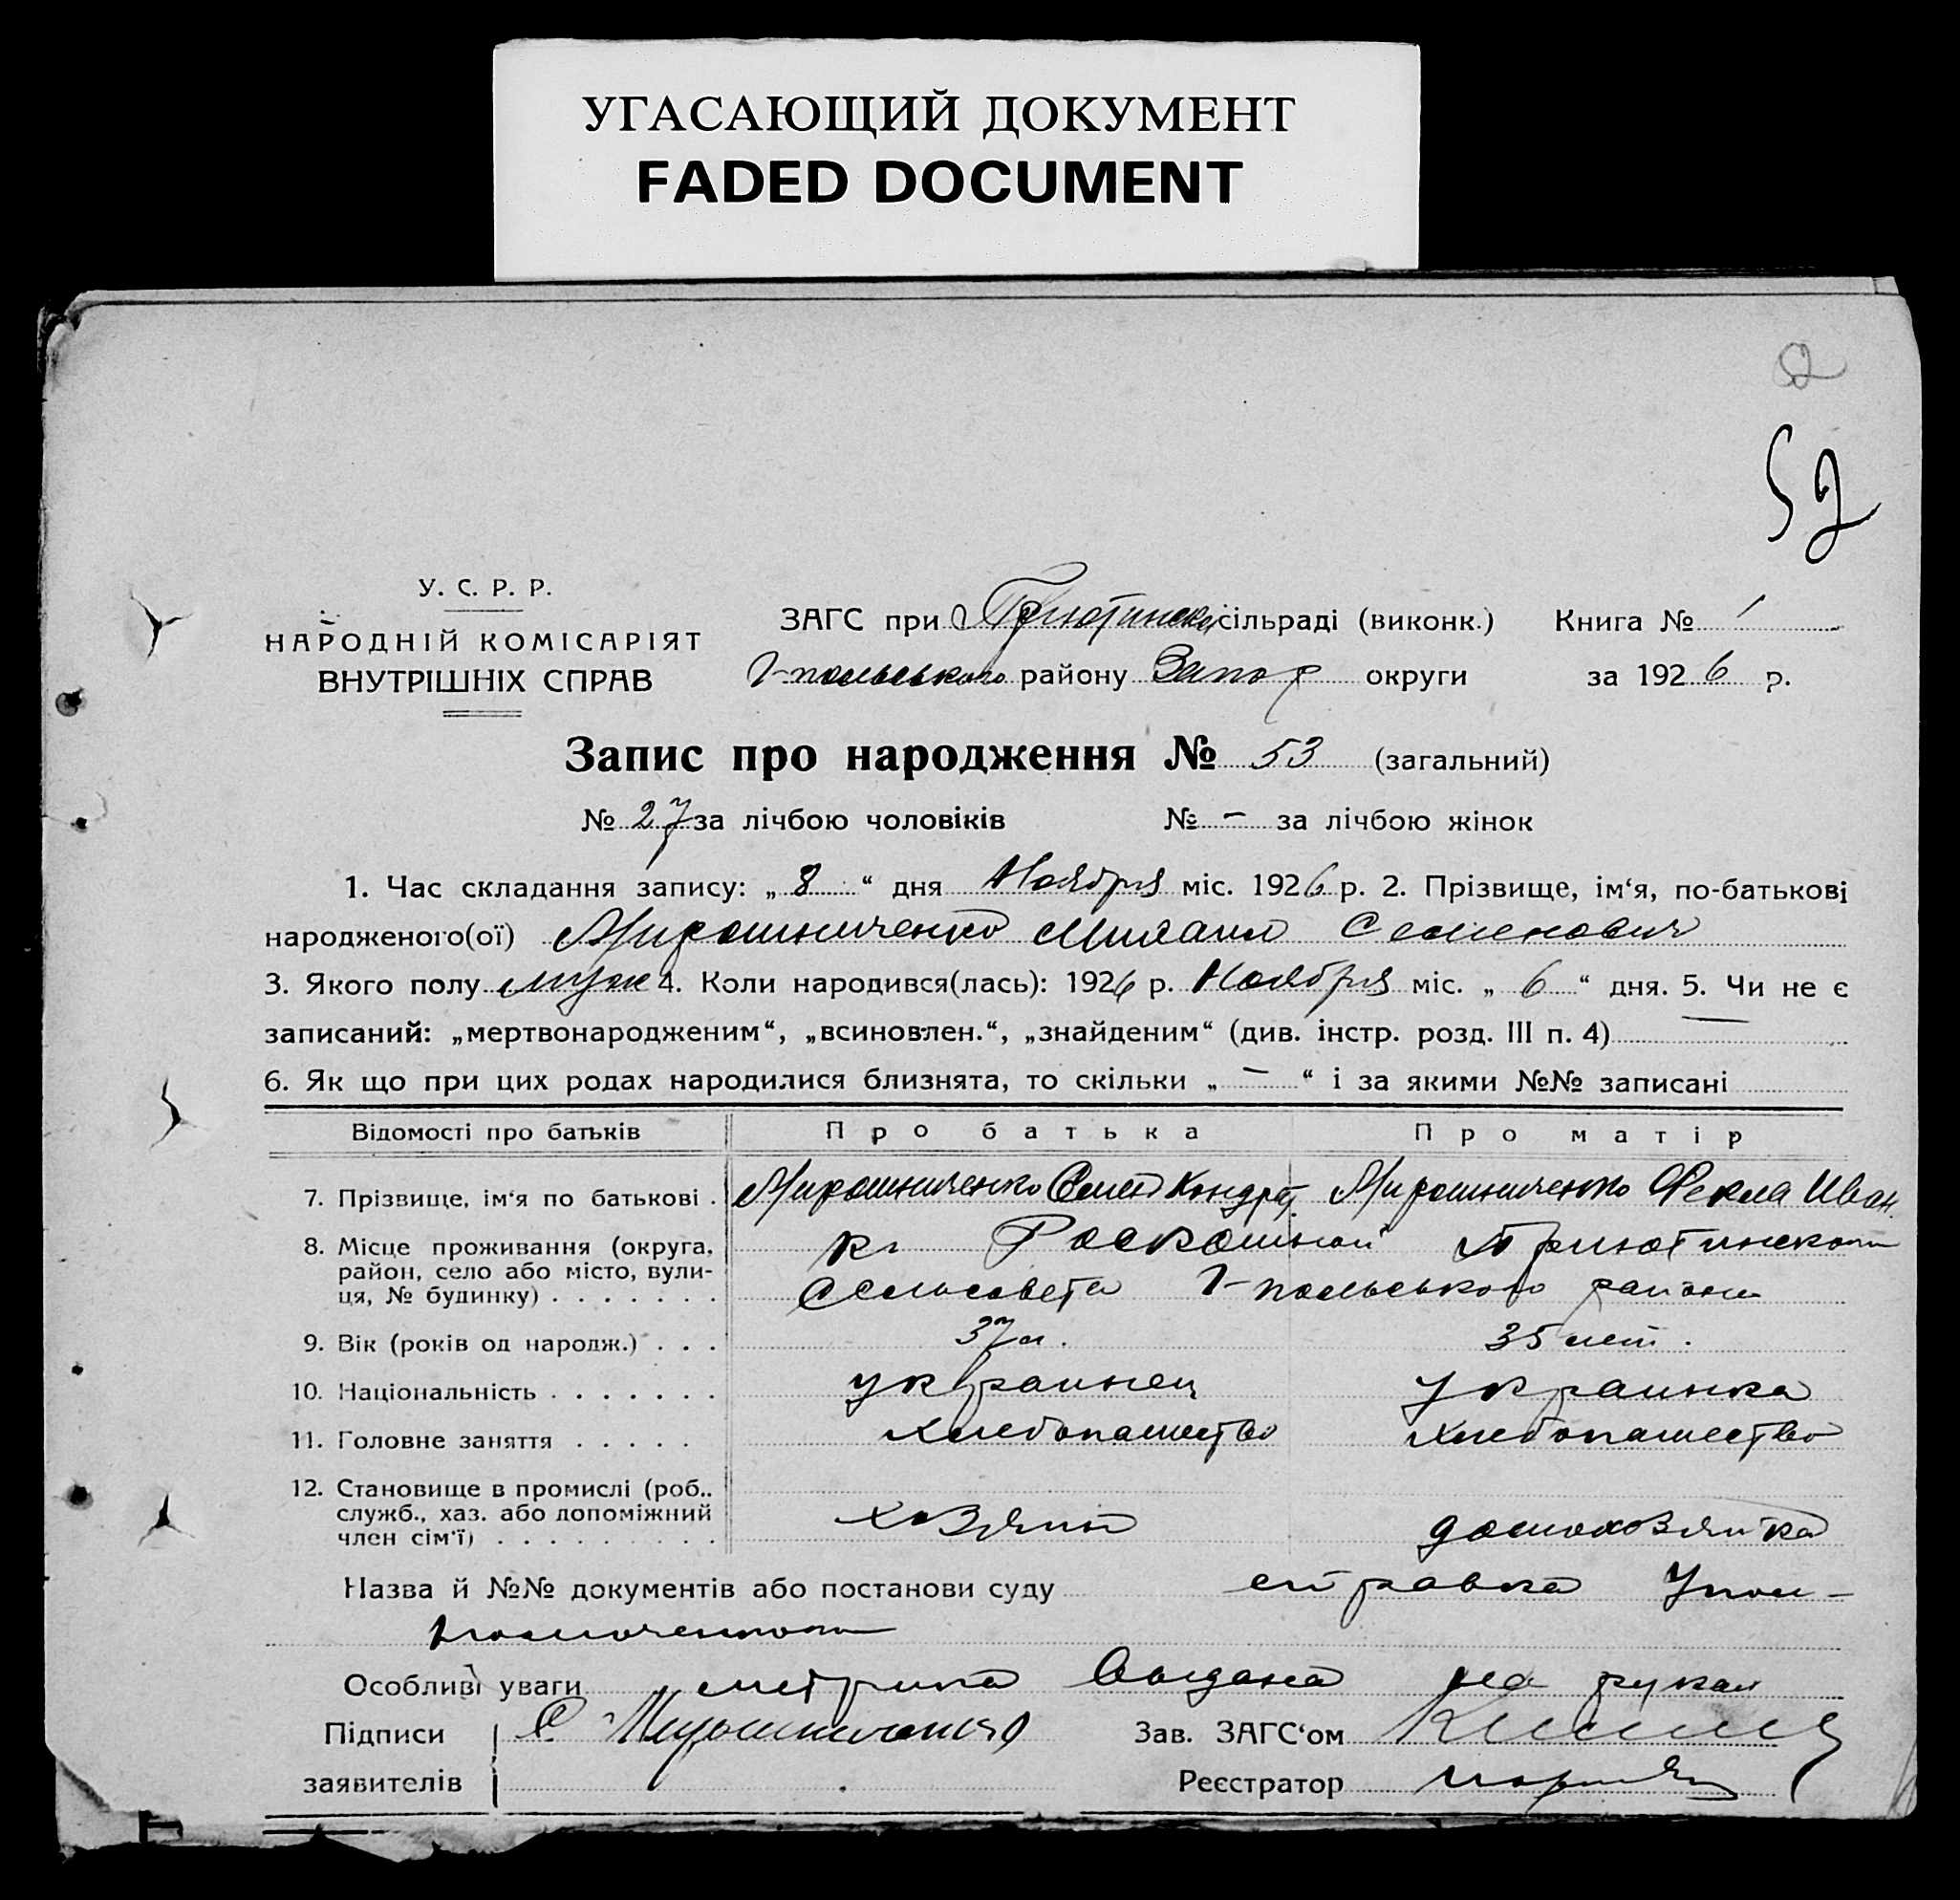 УГАСАЮЩИЙ ДОКУМЕНТ
FADED DOCUMENT
2
52
У. С. Р. Р.
НАРОДНІЙ КОМІСАРІЯТ
ВНУТРІШНІХ СПРАВ
ЗАГС при Приютинской сільраді (виконк.) Книга № 1
Г-польського району Запор округи за 1926 р.
Запис про народження № 53 (загальний)
№ 27 за лічбою чоловіків № - за лічбою жінок
1. Час складання запису: „ 8 “ дня Ноября міс. 1926 р. 2. Прізвище, ім‘я, по-батькові
народженого(ої) Мирошниченко Михаил Семенович
3. Якого полу муж 4. Коли народився(лась): 1926 р. Ноября міс. „ 6 “ дня. 5. Чи не є
записаний: „мертвонародженим“, „всиновлен.“, „знайденим“ (див. інстр. розд. III п. 4) —
6. Як що при цих родах народилися близнята, то скільки „ — “ і за якими №№ записані
Відомості про батьків Про батька Про матір
7. Прізвище, ім‘я по батькові . Мирошниченко Семен Кондрат. Мирошниченко Фекла Иван.
8. Місце проживання (округа, х. Роскошный Приютинского
район, село або місто, вули-
ця, № будинку) . . . . . . . Сельсовета Г-польського района
9. Вік (років од народж.) . . . 37 л. 35 лет.
10. Національність . . . . . . . украинец украинка
11. Головне заняття . . . . . Хлебопашество Хлебопашество
12. Становище в промислі (роб..
служб., хаз. або допоміжний
член сім‘ї) . . . . . . . . . хозяин домохозяйка
Назва й №№ документів або постанови суду справка Упол-
номоченного
Особливі уваги метрика выдана на руках
Підписи С. Мирошниченко Зав. ЗАГС‘ом
заявителів Реєстратор